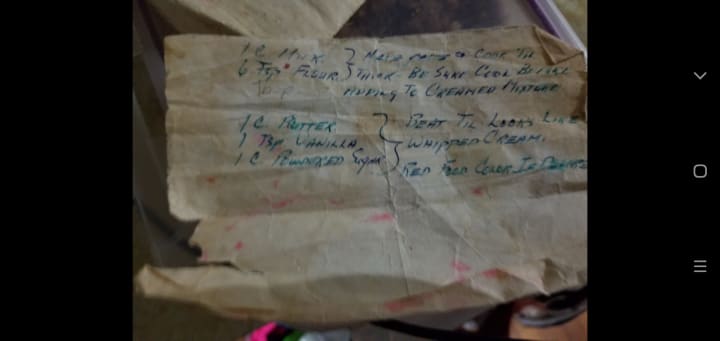 1 C Milk } Make paste & Cook Til
6 Tsp Flour } Thick Be Sure Cool Before
Adding To Creamed Mixture
1 C Butter } Beat Til Looks Like
1 Tsp Vanilla } Whipped Cream.
1 C Powdered Sugar } Red Food Color If Desired